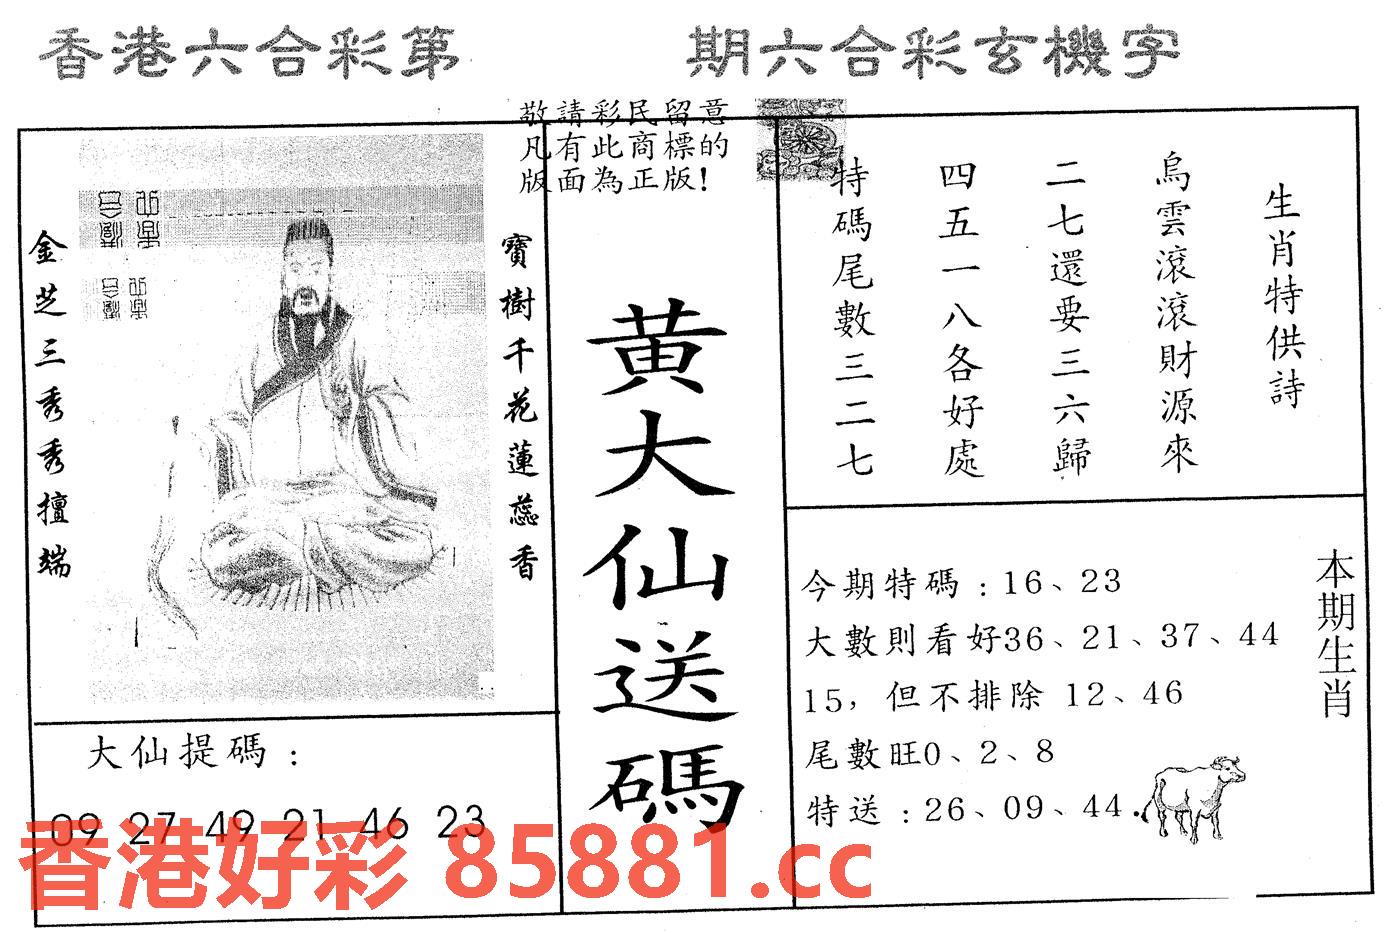 香港六合彩第　　　期六合彩玄機字
敬請彩民留意
凡有此商標的
版面為正版!
金芝三秀秀擅端
寶樹千花蓮蕊香
黃大仙送碼
生肖特供詩
烏雲滾滾財源來
二七還要三六歸
四五一八各好處
特碼尾數三二七
本期生肖
今期特碼:16、23
大數則看好36、21、37、44
15，但不排除 12、46
尾數旺0、2、8
特送:26、09、44.
大仙提碼:
09 27 49 21 46 23
香港好彩 85881.cc